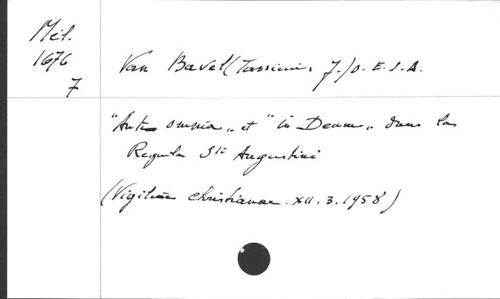 Mél.
1676
7
Van Bavel (Tarsicius J.) O. E. S. A.
"Ante omnia" et "in Deum" dans la
Regula Sti Augustini
(Vigiliae christianae. XII. 3. 1958)